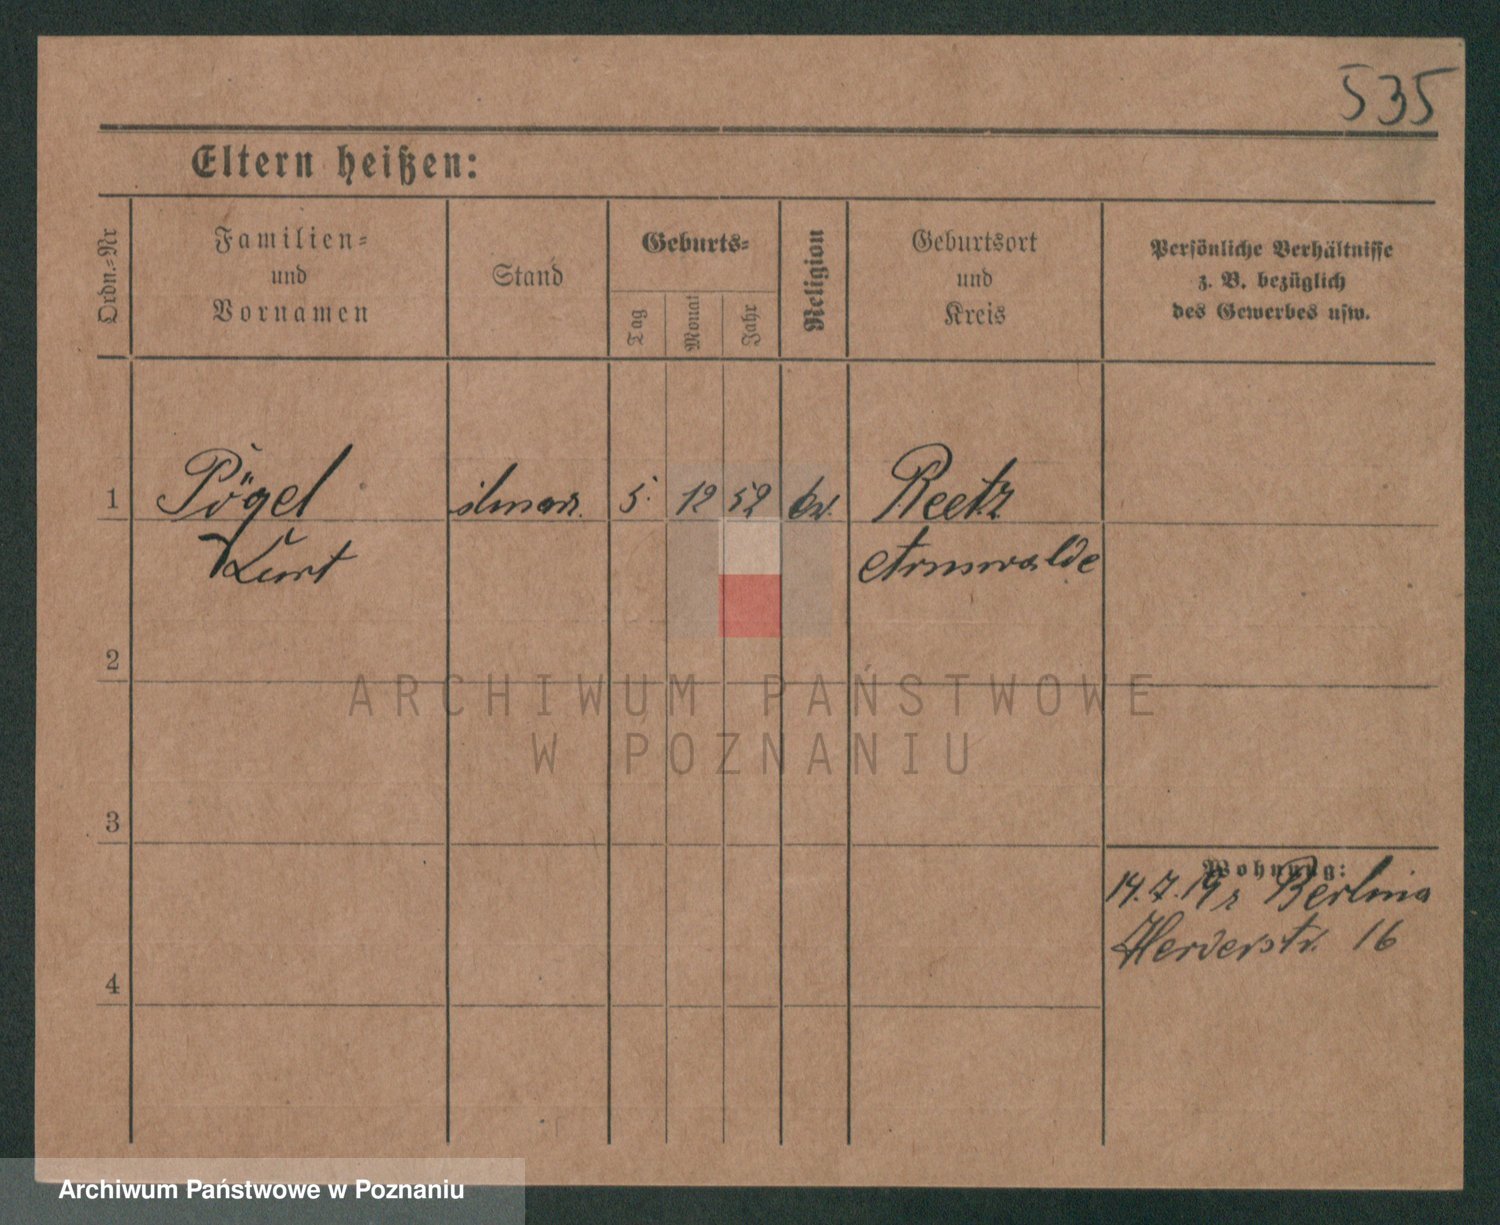 535
Eltern heißen:
Ordn.-Nr
Familien-
und
Vornamen
Stand
Geburts-
Tag
Monat
Jahr
Religion
Geburtsort
und
Kreis
Persönliche Verhältnisse
z. B. bezüglich
des Gewerbes usw.
1
Pögel
5. 12 52 ev.
Reetz
Kurt
Arnswalde
2
ARCHIWUM PAŃSTWOWE
W POZNANIU
3
Wohnung:
14.7.19
Herderstr. 16
4
Archiwum Państwowe w Poznaniu